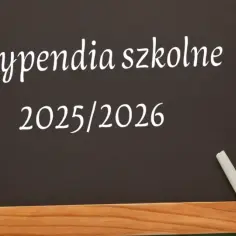 ypendia szkolne
2025/2026